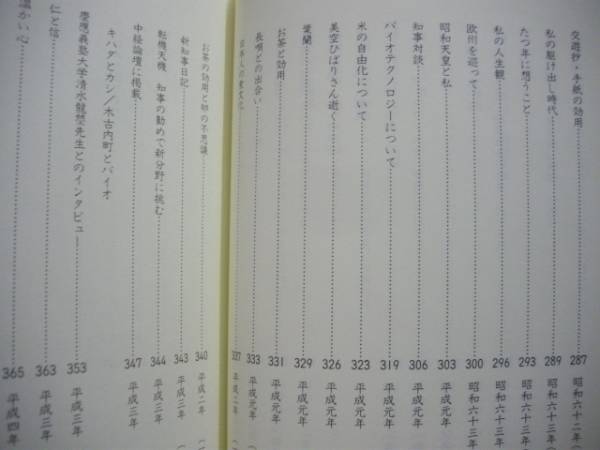 交遊抄・手紙の効用 287 昭和六十二年
私の駆け出し時代 289 昭和六十三年
たつ年に想うこと 293 昭和六十三年
私の人生観 296 昭和六十三年
欧州を巡って 300 昭和六十三年
昭和天皇と私 303 平成元年
知事対談 306 平成元年
バイオテクノロジーについて 319 平成元年
米の自由化について 323 平成元年
美空ひばりさん逝く 326 平成元年
愛蘭 329 平成元年
お茶と効用 331 平成元年
長唄との出合い 333 平成元年
日本人の食文化 337 平成二年
お茶の効用と卵の不思議 340 平成二年
新知事日記 343 平成三年
転機天機 知事の勧めで新分野に挑む 344 平成三年
中経論壇に掲載 347 平成三年
キハダとカシ／木古内町とバイオ
慶應義塾大学清水龍瑩先生とのインタビュー 353 平成三年
仁と信 363 平成三年
温かい心 365 平成四年